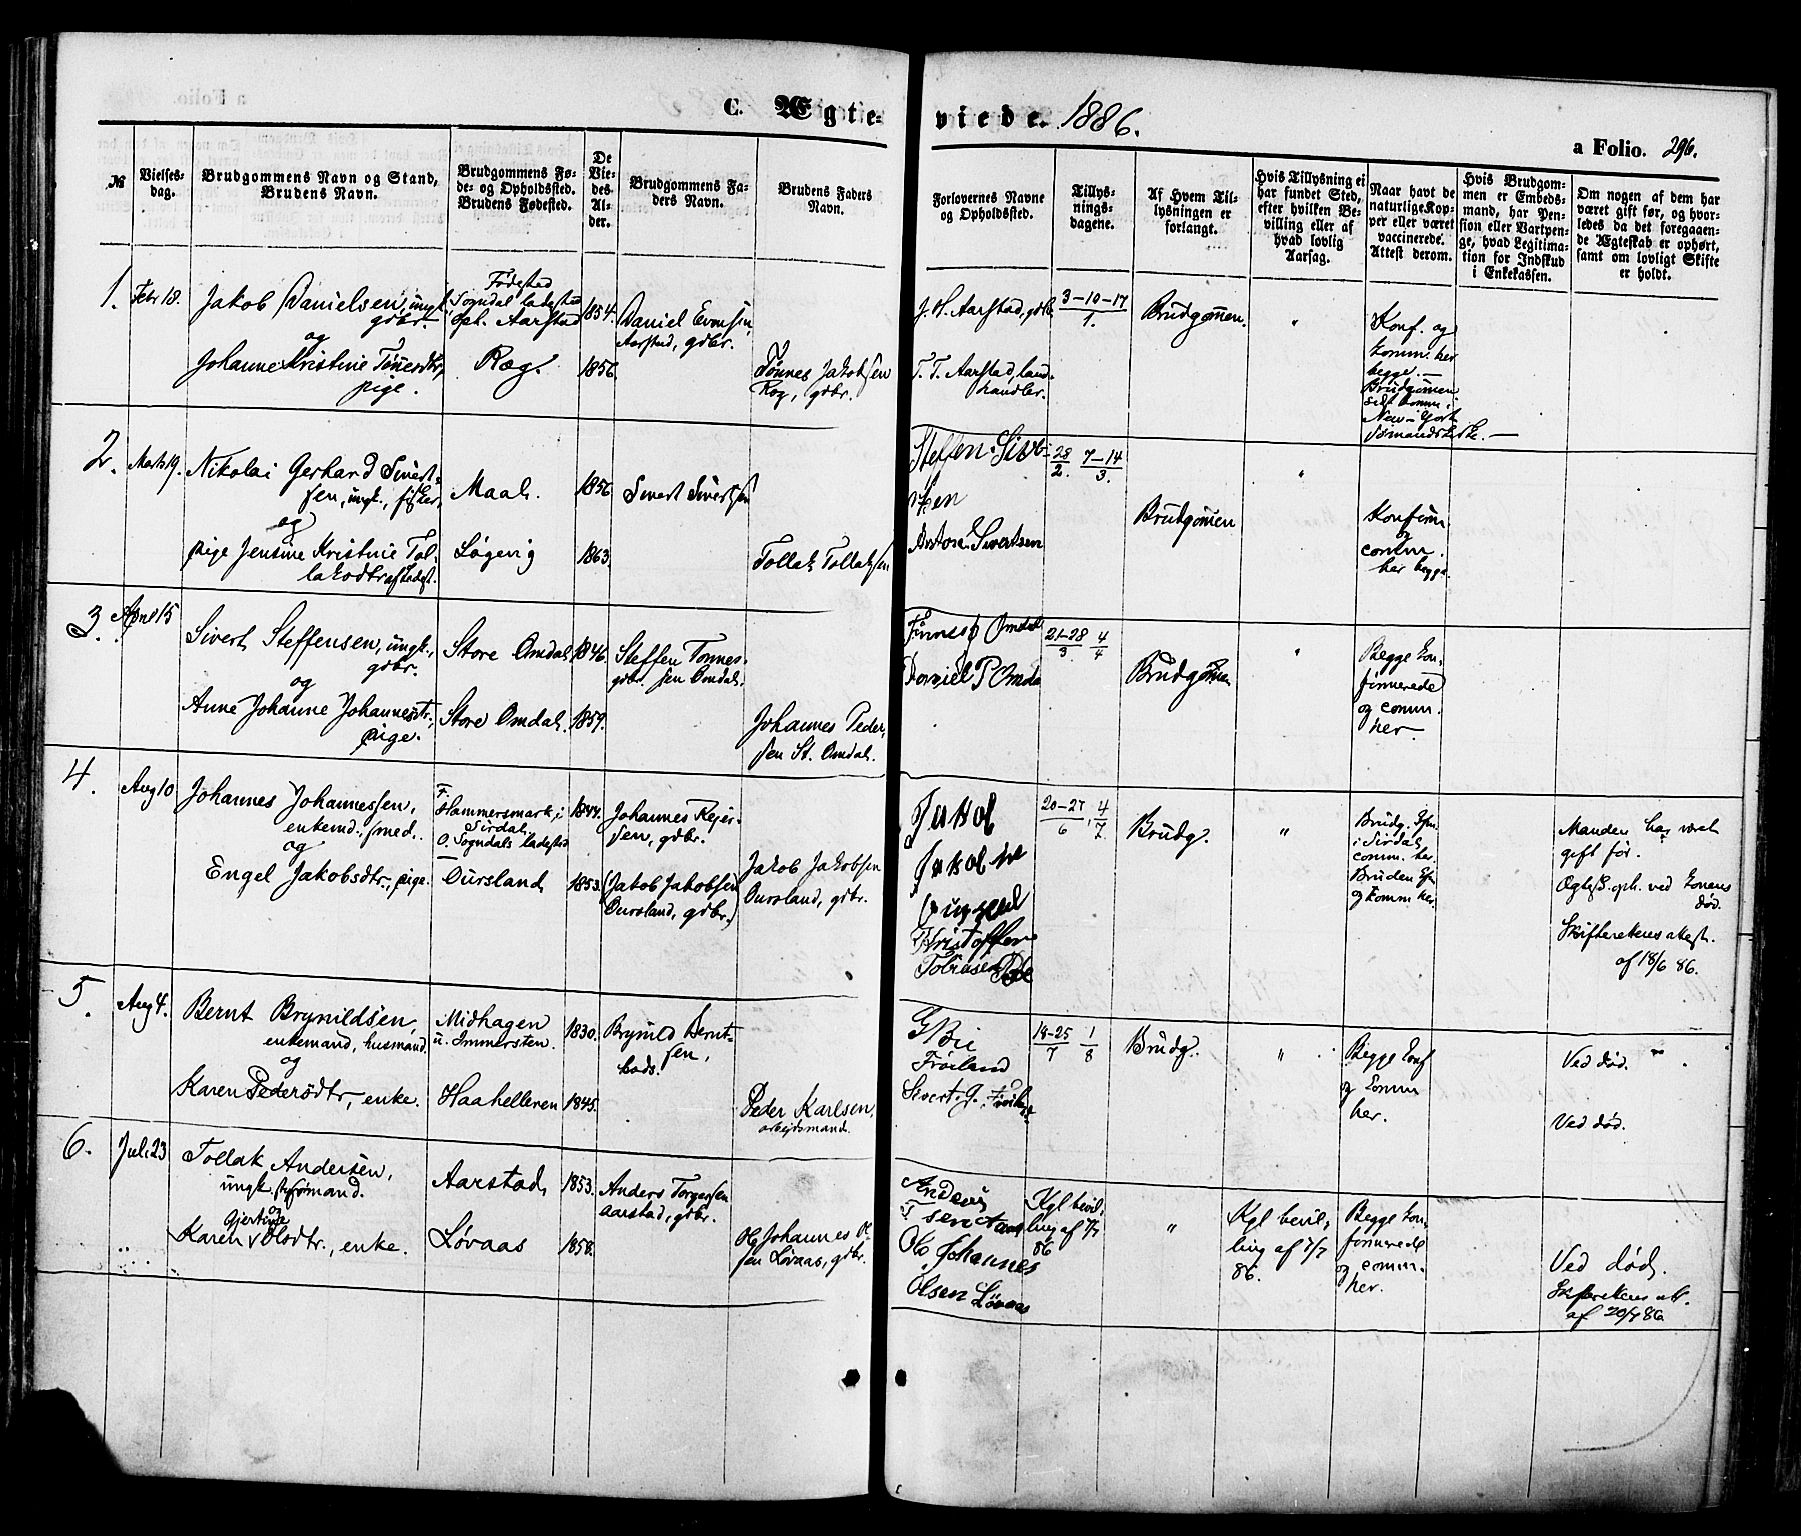 C. Ægteviede. 1886.
a Folio. 296.
№
Vielsesdag.
Brudgommens Navn og Stand,
Brudens Navn.
Brudgommens Føde- og Opholdssted.
Brudens Fødested.
De Viedes Alder.
Brudgommens Faders Navn.
Brudens Faders Navn.
Forlovernes Navne og Opholdssted.
Tillysningsdagene.
Af Hvem Tillysningen er forlangt.
Hvis Tillysning ei har fundet Sted, efter hvilken Bevilling eller af hvad lovlig Aarsag.
Naar havt de naturlige Kopper eller været vaccinerede. Attest derom.
Hvis Brudgommen er Embedsmand, har Pension eller Vartpenge, hvad Legitimation for Indskud i Enkekassen.
Om nogen af dem har været gift før, og hvorledes da det foregaaende Ægteskab er ophørt, samt om lovligt Skifte er holdt.
1. Febr 18.
Jakob Danielsen, ungk.
gdbr.
og
Johanne Kristine Tønesdtr,
pige.
Fødested
Sogndal ladested
Opl. Aarstad
Ræg.
1854.
1856.
Daniel Evensen,
Aarstad, gdbr.
Tønnes Jakobsen
Ræg, gdbr.
J. H. Aarstad, gdb.
T. T. Aarstad, land-
handler.
3-10-17
1.
Brudgommen.
"
Konf. og
komm. her
begge.—
Brudgommen
sidst komm. i
New-York
Sømandskirke.—
2. Marts 19.
Nikolai Gerhard Sivert-
sen, ungk., fisker,
og
pige Jensine Kristine Tol-
laksdtr af Ladest.
Maal.
Løgevig
1856
1863.
Sivert Sivertsen
Tollak Tollaksen
Steffen Sivert-
sen
Anton Sivertsen
28
2.
7-14
3.
Brudgommen
"
Konfirm
og
comm.
her begge.
3. April 15
Sivert Steffensen, ungk.,
gdbr.
og
Anne Johanne Johannesdtr.,
pige.
Store Omdal
Store Omdal.
1846.
1859.
Steffen Tønnes-
gdbr. sen Omdal.
Johannes Peder-
sen St. Omdal.
Daniel P Omda
21-28
3.
4
4
Brudgommen
"
Begge kon-
firmerede
og comm.
her.
4. Aug 10
Johannes Johannessen,
enkemd., smed.
og
Engel Jakobsdtr., pige.
F.
Hammersmark, i
Sirdal,
O. Sogndals ladested
Oursland
1844.
1853.
Johannes Rejer-
sen, gdbr.
(Jakob Jakobsen
Oursland, gdbr.)
Jakob Jakobsen
Oursland, gdbr.
Jakob
Kristoffer
Tobiasen
20-27
6
4
7.
Brudg.
"
Brudg. Cfm.
i Sirdal,
comm. her.
Bruden Cfm
og komm. her.
Manden har været
gift før.
Ægtesk. oph. ved konens
død.
Skifterettens attest.
af 18/6 86.
5. Aug 4.
Bernt Brynildsen,
enkemand, husmand.
og
Karen Pedersdtr, enke.
Midhagen
u. Immersten.
Haahelleren
1830.
1845.
Brynild Bernt-
sen,
Peder Karlsen,
arbejdsmand.
Frøiland
Sivert G.
18-25
7
1
8
Brudg.
"
Begge konf
og komm
her.
Ved død.
Ved død.
6. Juli 23
Tollak Andersen,
ungk., sømand.
og
Gjertine
Karen Olsdtr., enke.
Aarstad,
Løvaas
1853.
1858.
Anders Torgersen
Aarstad, gdbr.
Ole Johannes Ol-
sen Løvaas, gdbr.
Ole Johannes
Olsen Løvaas
Kgl bevil-
ling af 7/7
86
"
Kgl bevil-
ling af 7/7
86.
Begge kon-
firmerede
og comm.
her.
Ved død.
Skifterettens att.
af 20/7 86